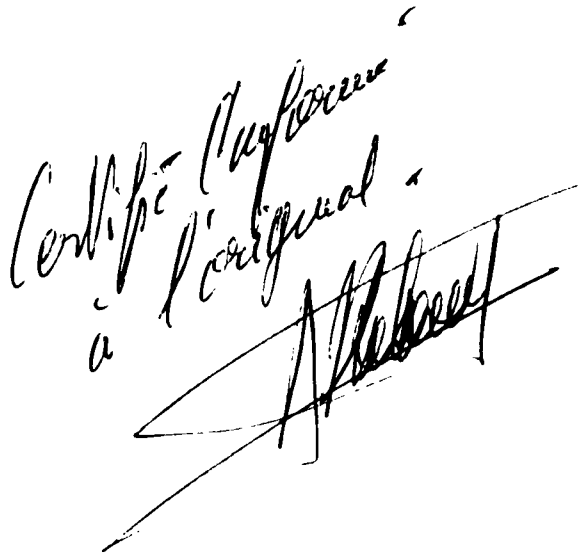 Certifié Conforme
à l'original.